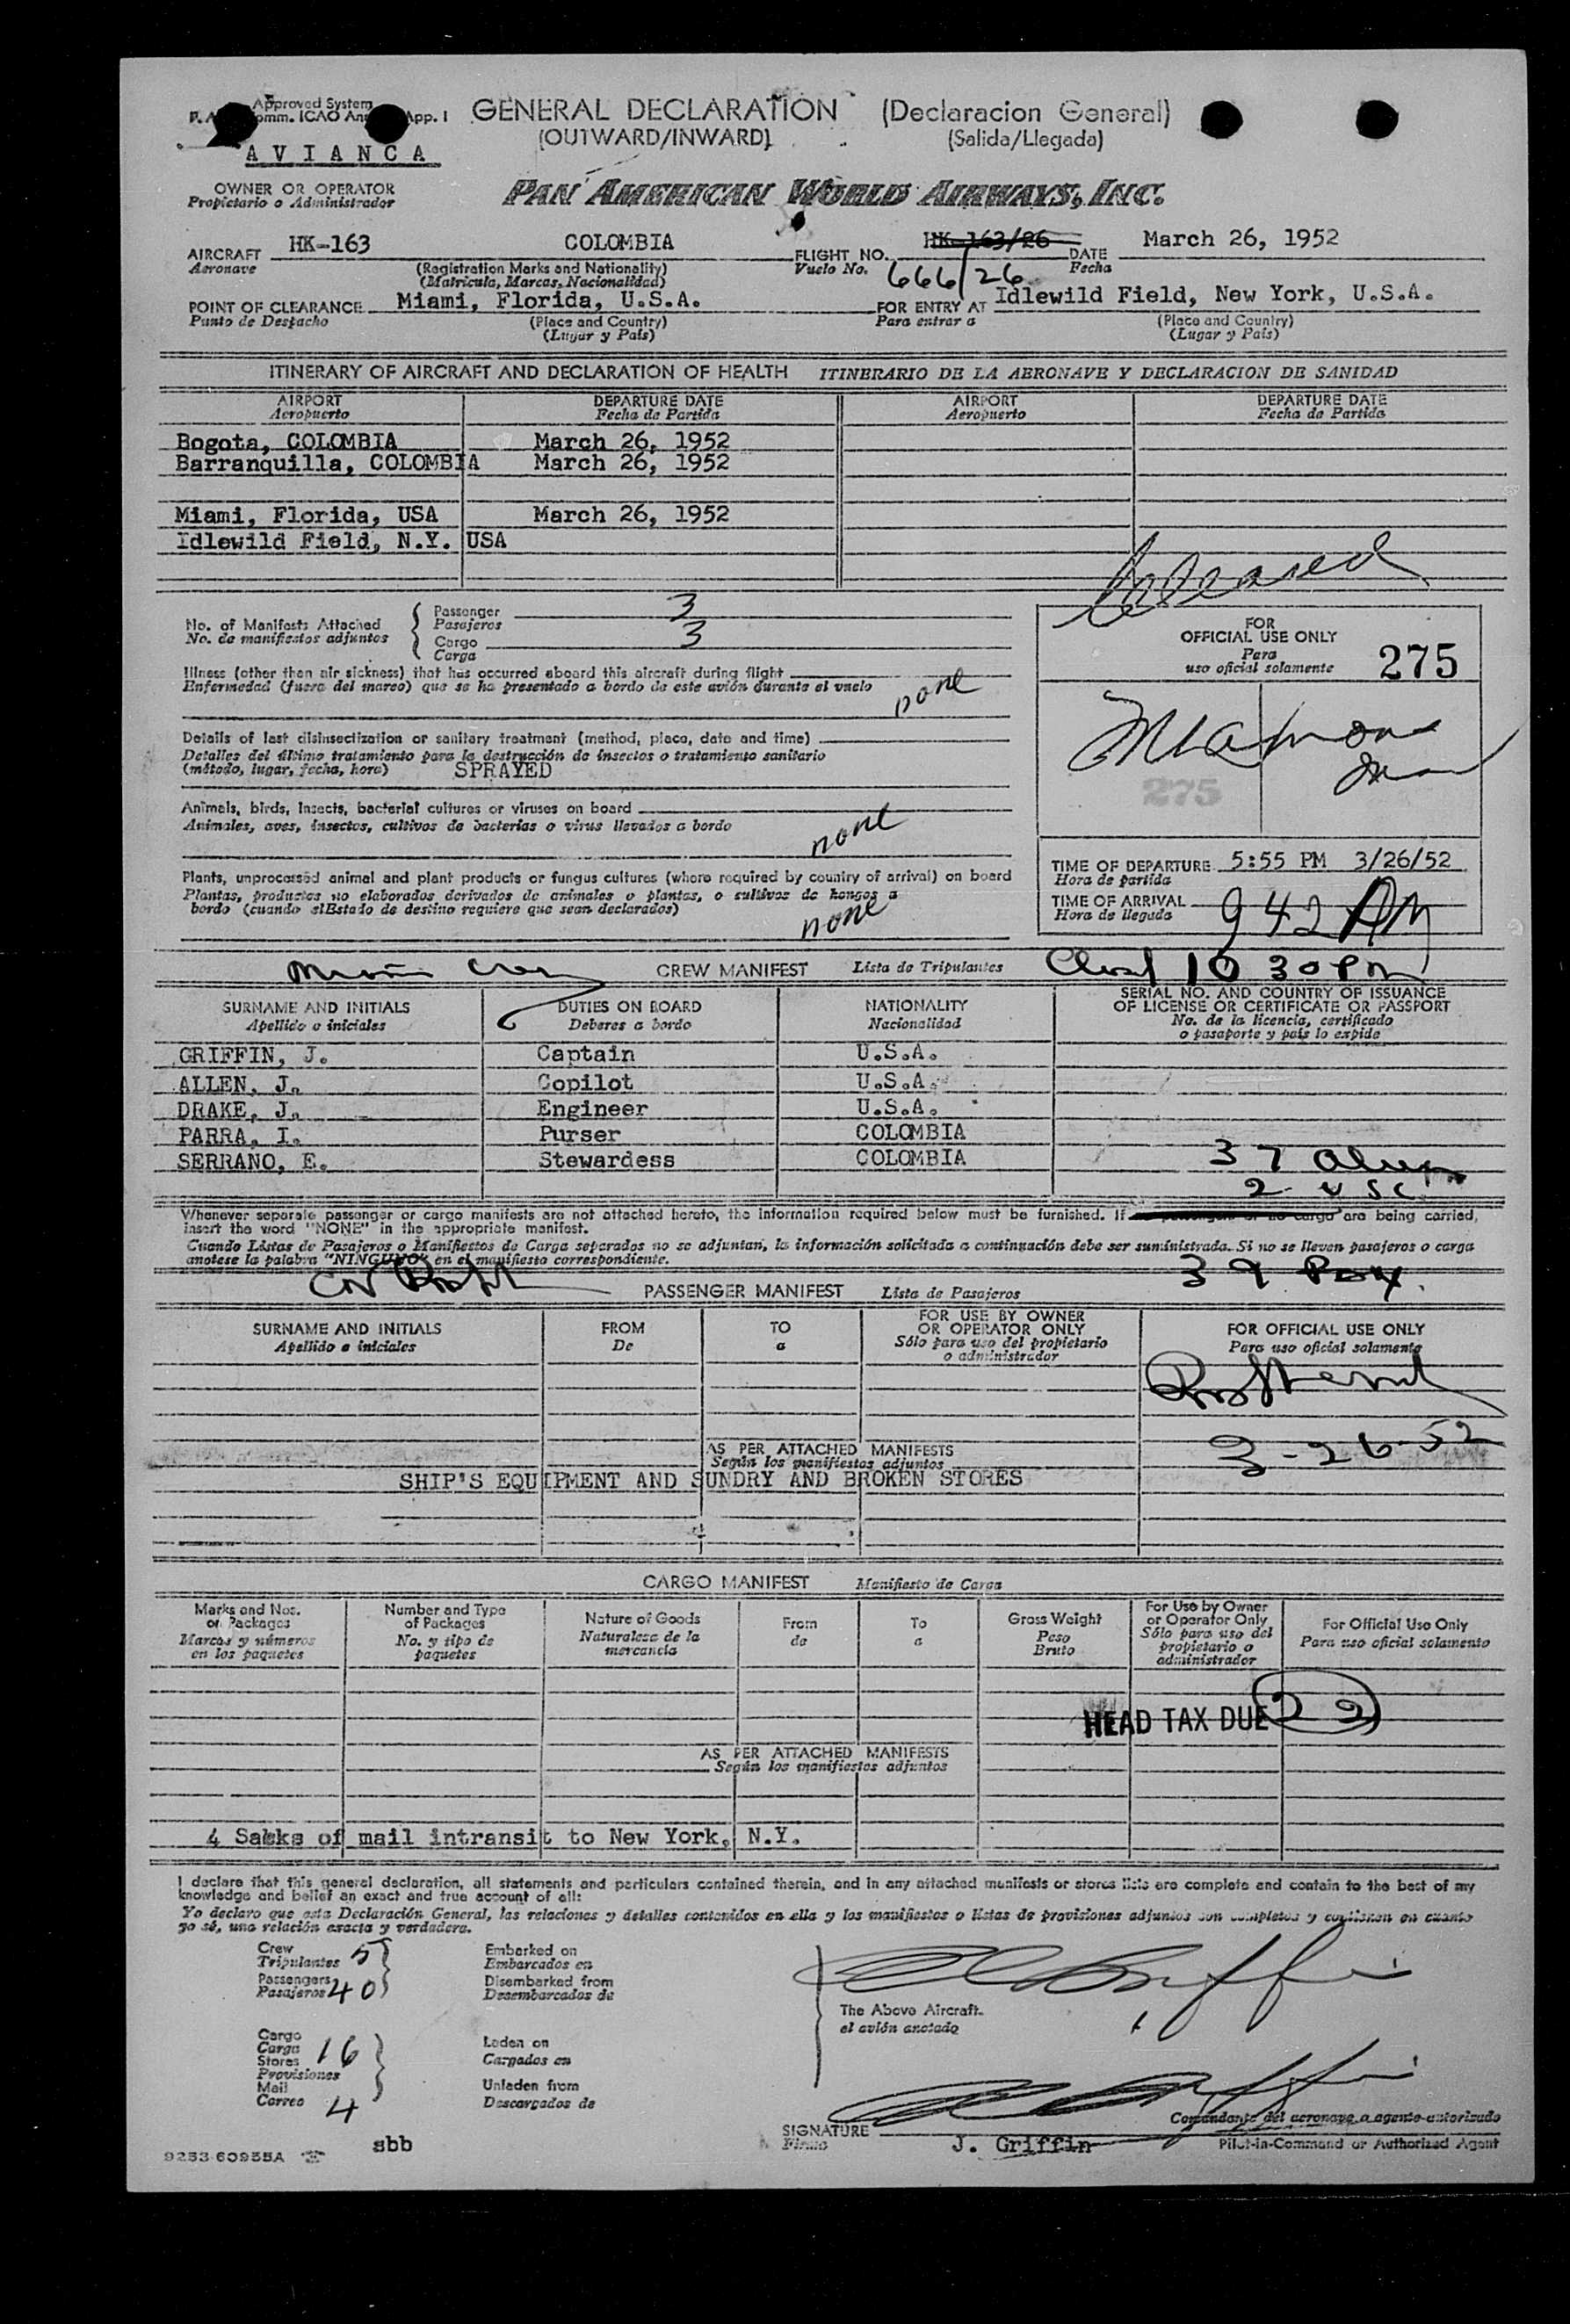 Approved System
GENERAL DECLARATION (Declaracion General)
(OUTWARD/INWARD) (Salida/Llegada)
AVIANCA
OWNER OR OPERATOR
Propietario o Administrador
PAN AMERICAN WORLD AIRWAYS, INC.
AIRCRAFT HK-163 COLOMBIA FLIGHT NO. HK-163/26 DATE March 26, 1952
Aeronave (Registration Marks and Nationality) Vuelo No. 666/26 Fecha
(Matricula, Marcas, Nacionalidad)
POINT OF CLEARANCE Miami, Florida, U.S.A. FOR ENTRY AT Idlewild Field, New York, U.S.A.
Punto de Despacho (Place and Country) Para entrar a (Place and Country)
(Lugar y País) (Lugar y País)
ITINERARY OF AIRCRAFT AND DECLARATION OF HEALTH ITINERARIO DE LA AERONAVE Y DECLARACION DE SANIDAD
AIRPORT DEPARTURE DATE AIRPORT DEPARTURE DATE
Aeropuerto Fecha de Partida Aeropuerto Fecha de Partida
Bogota, COLOMBIA March 26, 1952
Barranquilla, COLOMBIA March 26, 1952
Miami, Florida, USA March 26, 1952
Idlewild Field, N.Y. USA
Released
No. of Manifests Attached
No. de manifiestos adjuntos
Passenger 3
Pasajeros
Cargo 3
Carga
FOR
OFFICIAL USE ONLY
Para
uso oficial solamente 275
Illness (other than air sickness) that has occurred aboard this aircraft during flight
Enfermedad (fuera del mareo) que se ha presentado a bordo de este avión durante el vuelo none
Details of last disinsectization or sanitary treatment (method, place, date and time)
Detalles del último tratamiento para la destrucción de insectos o tratamiento sanitario
(método, lugar, fecha, hora) SPRAYED
275
Animals, birds, insects, bacterial cultures or viruses on board
Animales, aves, insectos, cultivos de bacterias o virus llevados a bordo none
Plants, unprocessed animal and plant products or fungus cultures (where required by country of arrival) on board
Plantas, productos no elaborados derivados de animales o plantas, o cultivos de hongos a
bordo (cuando el Estado de destino requiere que sean declarados) none
TIME OF DEPARTURE 5:55 PM 3/26/52
Hora de partida
TIME OF ARRIVAL 9 42 PM
Hora de llegada
CREW MANIFEST Lista de Tripulantes 10 30 PM
SURNAME AND INITIALS DUTIES ON BOARD NATIONALITY SERIAL NO. AND COUNTRY OF ISSUANCE
OF LICENSE OR CERTIFICATE OR PASSPORT
Apellido e iniciales Deberes a bordo Nacionalidad No. de la licencia, certificado
o pasaporte y país lo expide
GRIFFIN, J. Captain U.S.A.
ALLEN, J. Copilot U.S.A.
DRAKE, J. Engineer U.S.A.
PARRA, I. Purser COLOMBIA
SERRANO, E. Stewardess COLOMBIA 37 Aliens
2 USC
Whenever separate passenger or cargo manifests are not attached hereto, the information required below must be furnished. If no passengers or no cargo are being carried,
insert the word "NONE" in the appropriate manifest.
Cuando Listas de Pasajeros o Manifiestos de Carga separados no se adjuntan, la información solicitada a continuación debe ser suministrada. Si no se lleven pasajeros o carga
anotese la palabra "NINGUNO" en el manifiesto correspondiente.
39 Pax.
PASSENGER MANIFEST Lista de Pasajeros
SURNAME AND INITIALS FROM TO FOR USE BY OWNER
OR OPERATOR ONLY FOR OFFICIAL USE ONLY
Apellido e iniciales De a Sólo para uso del propietario
o administrador Para uso oficial solamente
3-26-52
AS PER ATTACHED MANIFESTS
Según los manifiestos adjuntos
SHIP'S EQUIPMENT AND SUNDRY AND BROKEN STORES
CARGO MANIFEST Manifiesto de Carga
Marks and Nos.
on Packages
Marcas y números
en los paquetes
Number and Type
of Packages
No. y tipo de
paquetes
Nature of Goods
Naturaleza de la
mercancía
From
de
To
a
Gross Weight
Peso
Bruto
For Use by Owner
or Operator Only
Sólo para uso del
propietario o
administrador
For Official Use Only
Para uso oficial solamente
HEAD TAX DUE 22
AS PER ATTACHED MANIFESTS
Según los manifiestos adjuntos
4 Sacks of mail intransit to New York, N.Y.
I declare that this general declaration, all statements and particulars contained therein, and in any attached manifests or stores lists are complete and contain to the best of my
knowledge and belief an exact and true account of all:
Yo declaro que esta Declaración General, las relaciones y detalles contenidos en ella y los manifiestos o listas de provisiones adjuntos son completos y contienen en cuanto
yo sé, una relación exacta y verdadera.
Crew
Tripulantes 5
Passengers
Pasajeros 40
Embarked on
Embarcados en
Disembarked from
Desembarcados de
The Above Aircraft.
el avión anotado
Cargo
Carga 16
Stores
Provisiones
Mail
Correo 4
Laden on
Cargados en
Unladen from
Descargados de
SIGNATURE
Firma
Comandante del aeronave o agente autorizado
J. Griffin Pilot-in-Command or Authorized Agent
9253 60955A sbb